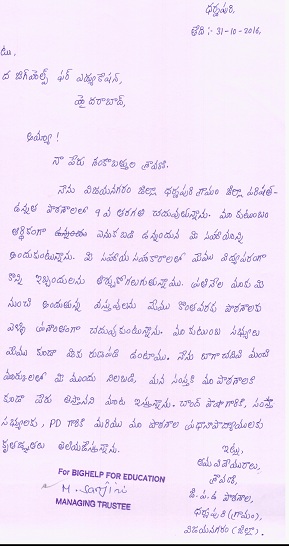 ధర్మపురి,
తేది :- 31-10-2016,
టు,
ద బిగ్‌హెల్ప్ ఫర్ ఎడ్యుకేషన్,
హైదరాబాద్,
అమ్మా !
నా పేరు శ్రావణి.
నేను విజయనగరం జిల్లా, ధర్మపురి గ్రామం జిల్లా పరిషత్
ఉన్నత పాఠశాలలో 9 వ తరగతి చదువుతున్నాను. మా కుటుంబం
ఆర్థికంగా వెనుకబడి ఉన్నందున మీ సహాయాన్ని
అందుకుంటున్నాను. మీ సహాయ సహకారాలతో మేము విద్యాపరంగా
కొన్ని ఇబ్బందులను తీర్చుకోగలుగుతున్నాము. మాకు మీ
నుంచి అందుతున్న వస్తువులను మేము కొంతవరకు పాఠశాలకు
వెళ్ళి చదువుకుంటున్నాను. మా కుటుంబ సభ్యులు
మేము కూడా మీకు రుణపడి ఉంటాము. నేను బాగా చదివి మంచి
మార్కులతో మీ ముందు నిలబడి, మన సంస్థకి మా పాఠశాలకి
కూడా పేరు తెస్తానని మాట ఇస్తున్నాను. చాంద్ పాషా గారికి, సంస్థ
సభ్యులకు, PD గారికి మరియు మా పాఠశాల ప్రధానోపాధ్యాయులకు
కృతజ్ఞతలు తెలియజేస్తున్నాను.
For BIGHELP FOR EDUCATION
M. Sanjini
MANAGING TRUSTEE
ఇట్లు,
తమ విధేయురాలు,
శ్రావణి,
జి.ప.ఉ పాఠశాల,
ధర్మపురి (గ్రామం),
విజయనగరం (జిల్లా).